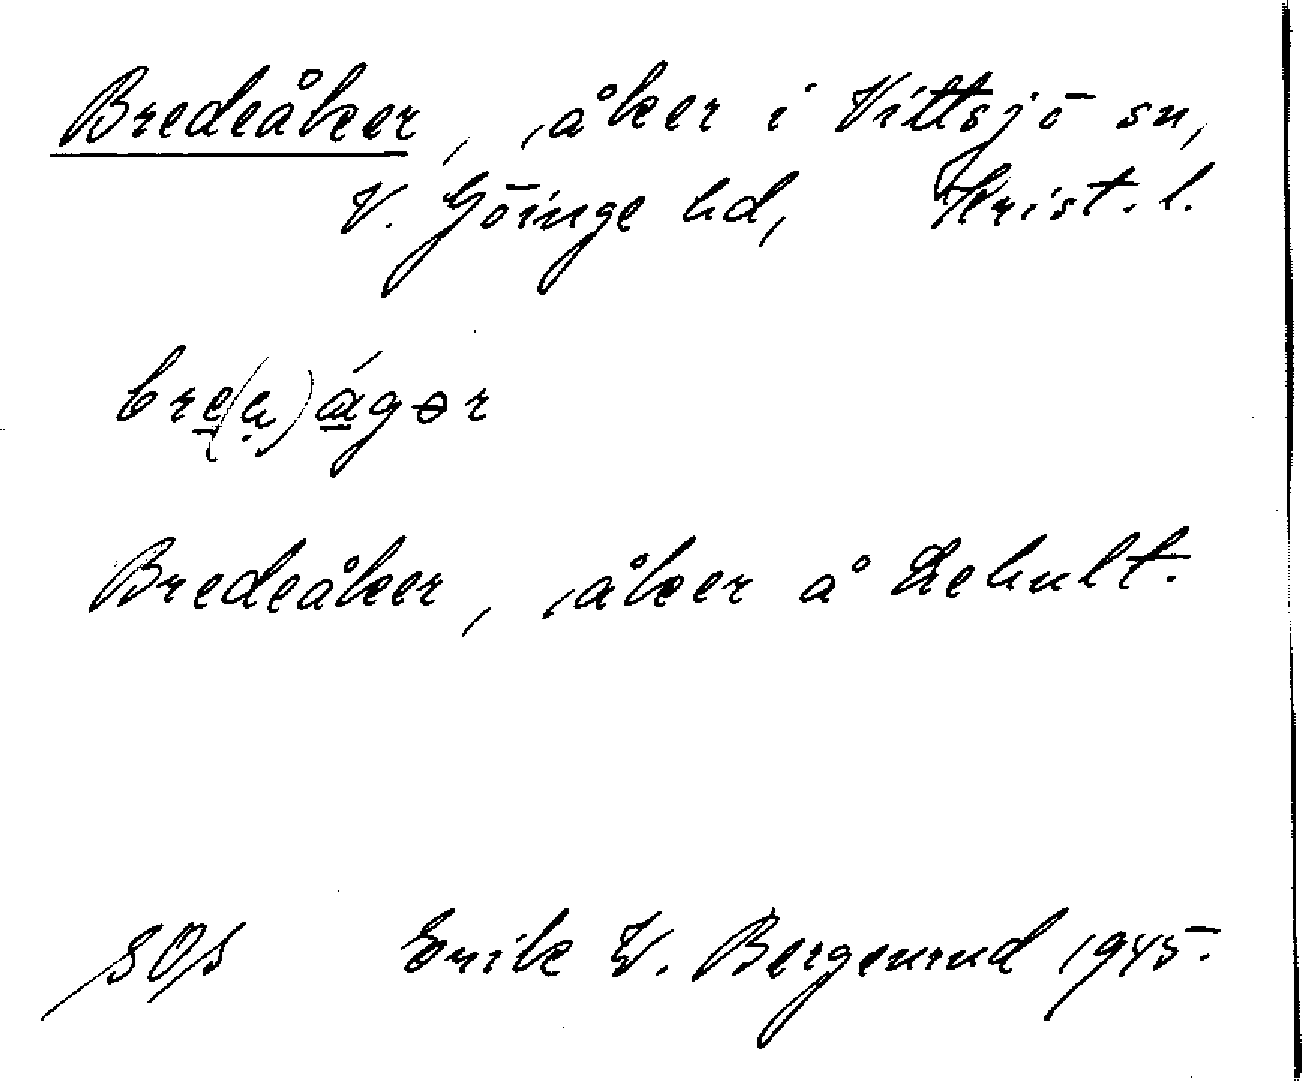 Bredeåker, åker i Vittsjö sn,
V. Göinge hd, Krist. l.
bre(a)ágər
Bredeåker, åker å Lehult.
SOS Erik W. Bergenrud 1945.